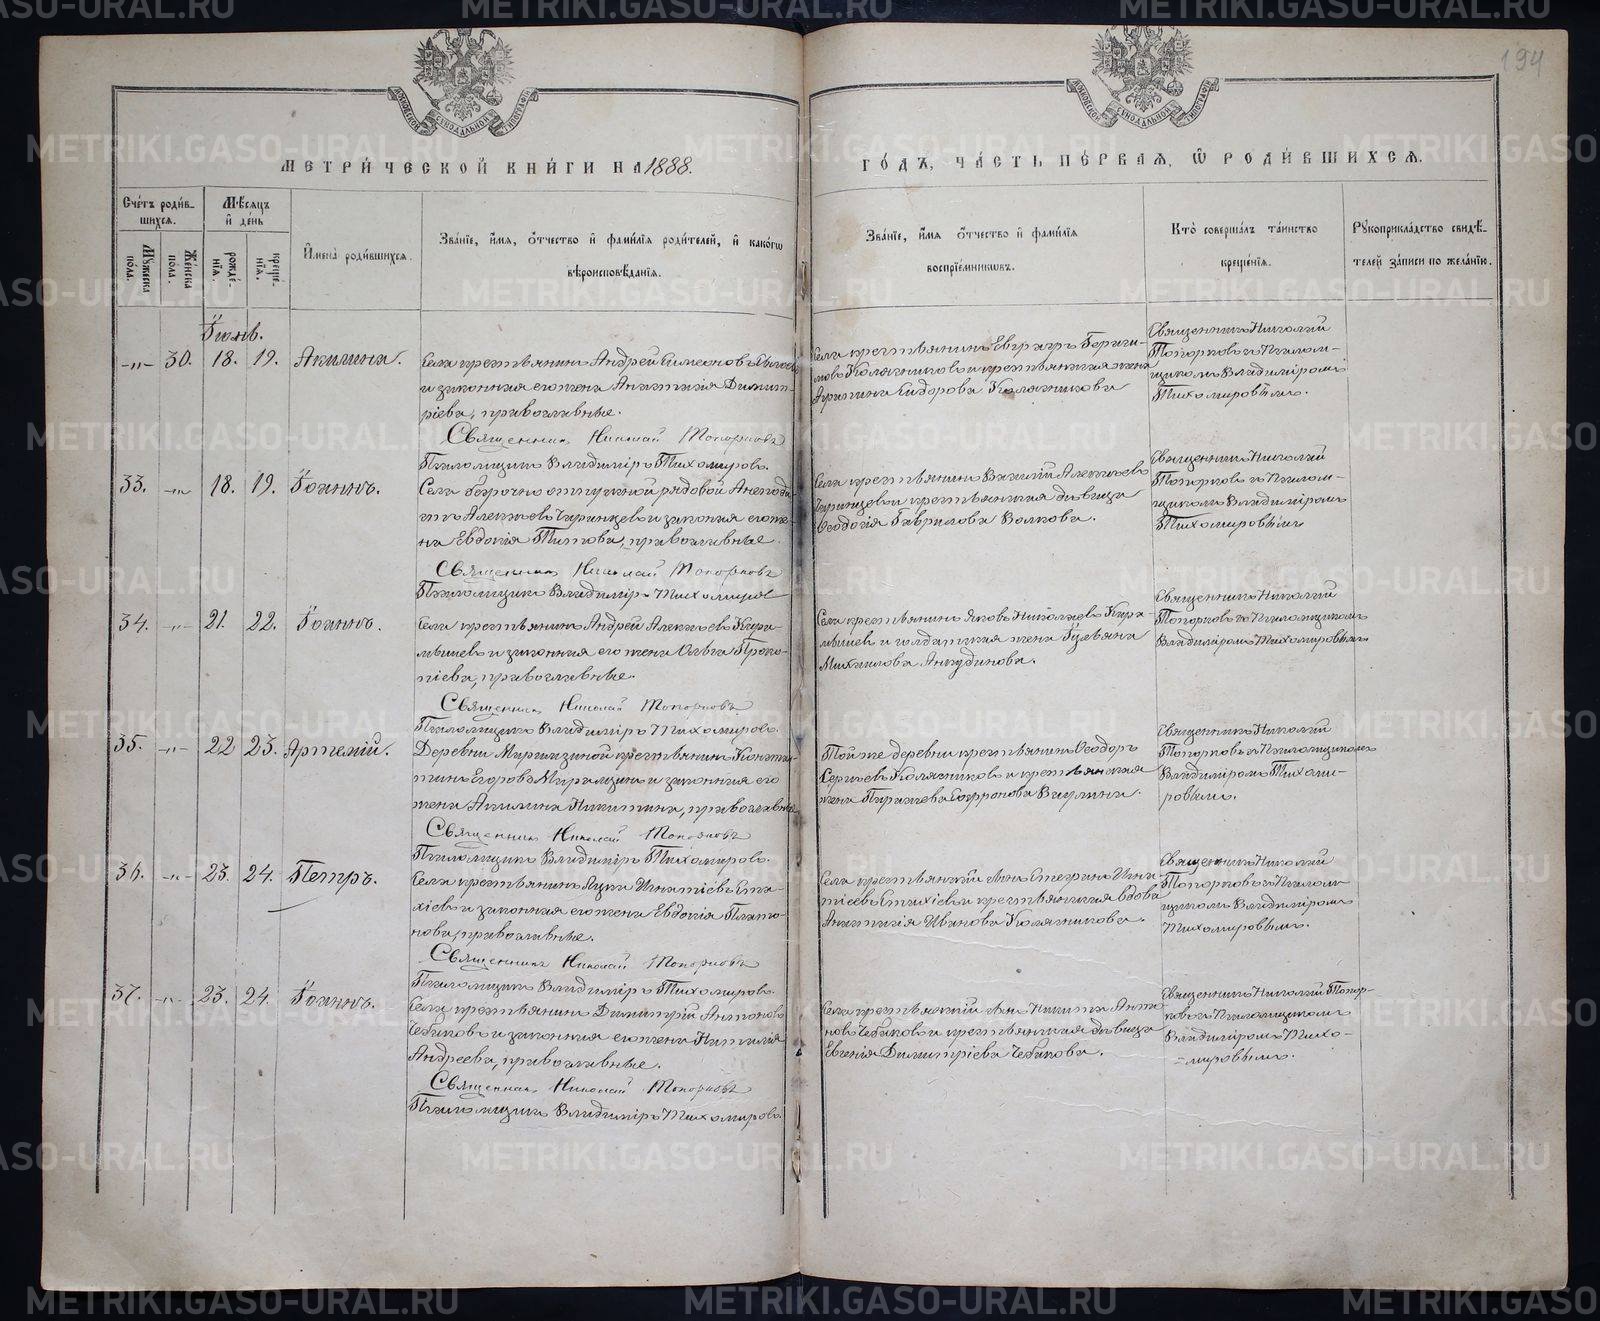 194
МЕТРИ́ЧЕСКОЙ КНИ́ГИ НА 1888.
ГО́ДЪ, ЧА́СТЬ ПЕ́РВАЯ, Ѡ РОДИ́ВШИХСЯ.
Сче́тъ роди́в-
шихся.
Му́жеска по́ла.
Же́нска по́ла.
Мѣ́сяцъ и де́нь
рожде́-нїя.
креще́-нїя.
И҆мена̀ роди́вшихся.
Зва́нїе, и҆́мя, ѻ҆́тчество и҆ фами́лїя роди́телей, и҆ како́гѡ
вѣроисповѣ́данїя.
Зва́нїе, и҆́мя ѻ҆́тчество и҆ фами́лїя
воспрїе́мниковъ.
Кто̀ соверша́лъ та́инство
креще́нїя.
Рꙋкоприкла́дство свидѣ́-
телей за́писи по жела́нїю.
Іюнь.
-"- 30. 18. 19. Акилина.
Села крестьянинъ Андрей Симеоновъ
и законная его жена Анастасія Димит-
ріева, православные.
Священникъ Николай Топорковъ
Псаломщикъ Владиміръ Тихомировъ.
Села крестьянинъ Евграфъ
Колясниковъ и крестьянская жена
Агрипина Сидорова Колясникова
Священникъ Николай
Топорковъ съ Псалом-
щикомъ Владиміромъ
Тихомировымъ.
33. -"- 18. 19. Іоаннъ.
Села безсрочно отпускной рядовой
Алексѣевъ и законная его же-
на Евдокія Титова, православные.
Священникъ Николай Топорковъ
Псаломщикъ Владиміръ Тихомировъ
Села крестьянинъ Василій Алексѣевъ
и крестьянская дѣвица
Ѳеодосія Гаврилова Волкова.
Священникъ Николай
Топорковъ съ Псалом-
щикомъ Владиміромъ
Тихомировымъ
34. -"- 21. 22. Іоаннъ.
Села крестьянинъ Андрей Алексѣевъ
и законная его жена Ольга Проко-
піева, православные.
Священникъ Николай Топорковъ
Псаломщикъ Владиміръ Тихомировъ.
Села крестьянинъ Яковъ Николаевъ
и солдатская жена Іуліана
Михаилова Анкудинова.
Священникъ Николай
Топорковъ съ Псаломщикомъ
Владиміромъ Тихомировымъ
35. -"- 22 23. Артемій.
Деревни крестьянинъ Констан-
тинъ Егоровъ и законная его
жена Акилина Никитина, православные
Священникъ Николай Топорковъ
Псаломщикъ Владиміръ Тихомировъ.
Той же деревни крестьянинъ Ѳеодоръ
Сергѣевъ Колясниковъ и крестьянская
жена Параскева Софронова
Священникъ Николай
Топорковъ съ Псаломщикомъ
Владиміромъ Тихоми-
ровымъ.
36. -"- 23. 24. Петръ.
Села крестьянинъ Игнатіевъ Ста-
хіевъ и законная его жена Евдокія Плато-
нова, православные.
Священникъ Николай Топорковъ
Псаломщикъ Владиміръ Тихомировъ.
Села крестьянскій сынъ Игна-
тіевъ Стахіевъ и крестьянская вдова
Анастасія Иванова Колясникова.
Священникъ Николай
Топорковъ съ Псалом-
щикомъ Владиміромъ
Тихомировымъ.
37. -"- 23. 24. Іоаннъ.
Села крестьянинъ Димитрій Антоновъ
Чебыковъ и законная его жена Наталія
Андреева, православные.
Священникъ Николай Топорковъ
Псаломщикъ Владиміръ Тихомировъ
Села крестьянскій сынъ Никита Анто-
новъ Чебыковъ и крестьянская дѣвица
Евгенія Димитріева Чебыкова.
Священникъ Николай Топор-
ковъ съ Псаломщикомъ
Владиміромъ Тихо-
мировымъ.
METRIKI.GASO-URAL.RU